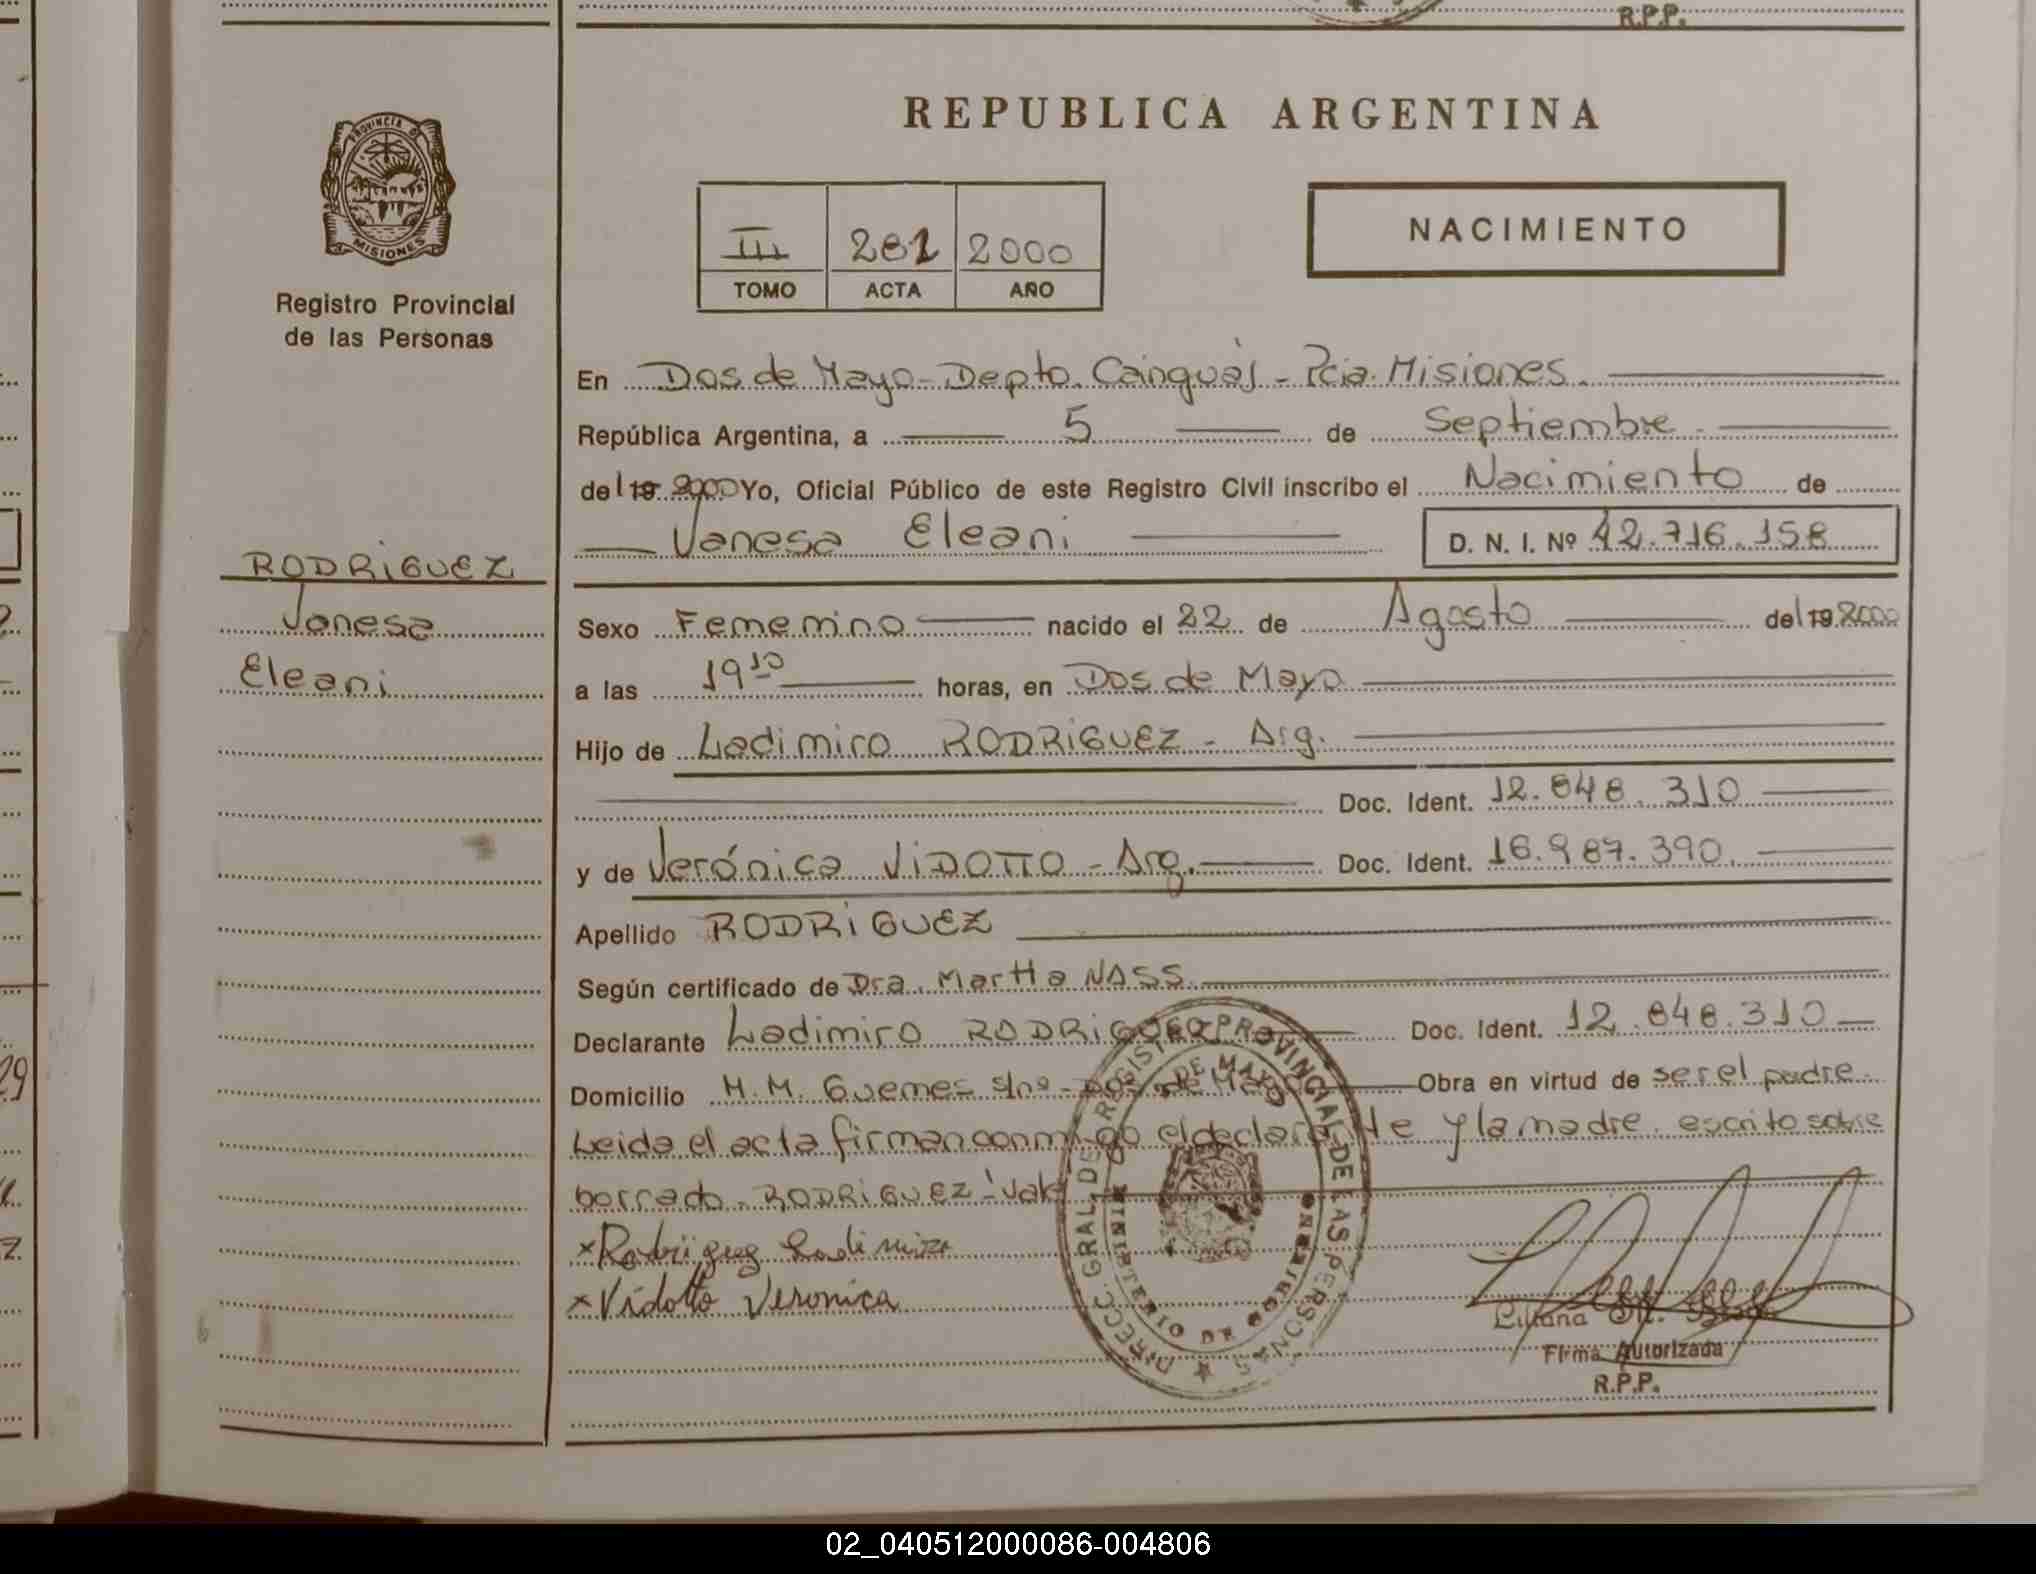 R.P.P.
REPUBLICA ARGENTINA
PROVINCIA DE
MISIONES
Registro Provincial
de las Personas
III 281 2000
TOMO ACTA AÑO
NACIMIENTO
En Dos de Mayo - Depto. Cainguás - Pcia. Misiones.
República Argentina, a 5 de Septiembre
del 19 2000 Yo, Oficial Público de este Registro Civil inscribo el Nacimiento de
Vanesa Eleani D. N. I. Nº 42.716.158
RODRIGUEZ
Vanesa
Eleani
Sexo Femenino nacido el 22 de Agosto del 19 2000
a las 19 10 horas, en Dos de Mayo
Hijo de Ladimiro RODRIGUEZ - Arg.
Doc. Ident. 12.848.310
y de Verónica VIDOTTO - Arg. Doc. Ident. 16.987.390
Apellido RODRIGUEZ
Según certificado de Dra. Martha NASS
Declarante Ladimiro RODRIGUEZ Doc. Ident. 12.848.310
Domicilio M.M. Guemes s/nº - Dos de Mayo Obra en virtud de ser el padre.
Leida el acta firman conmigo el declarante y la madre. escrito sobre
borrado - RODRIGUEZ - Vale
x Rodriguez Ladimiro
x Vidotto Veronica
DIRECC. GRAL. DE REGISTRO PROVINCIAL DE LAS PERSONAS
DOS DE MAYO
MINISTERIO DE GOBIERNO
Liliana
Firma Autorizada
R.P.P.
29
02_040512000086-004806